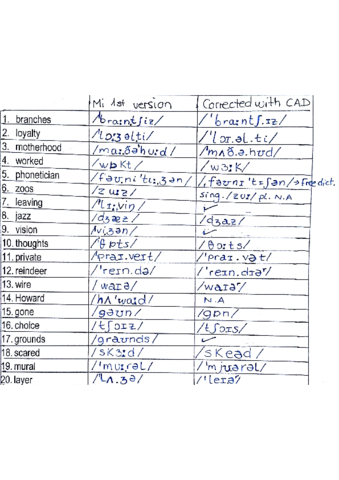 Mi 1st version Corrected with CAD
1. branches /ˈbraɪntʃiz/ /ˈbraɪntʃ.ɪz/
2. loyalty /ˈlɔːʒəlti/ /ˈlɔɪ.əl.ti/
3. motherhood /maːðəˈhuːd/ /ˈmʌð.ə.hʊd/
4. worked /wɒkt/ /wɜːk/
5. phonetician /fəʊniˈtɪːʒən/ /ˌfəʊnɪˈtɪʃən/→free dict.
6. zoos /zuɪz/ sing. /zuː/ pl. N.A
7. leaving /ˈlɪːvin/ ✓
8. jazz /dʒæz/ /dʒaz/
9. vision /ˈviʒən/ ✓
10. thoughts /ˈθɒts/ /θɔːts/
11. private /ˈpraɪ.veɪt/ /ˈpraɪ.vət/
12. reindeer /ˈreɪn.də/ /ˈreɪn.dɪəʳ/
13. wire /waɪə/ /waɪəʳ/
14. Howard /hʌˈwaɪd/ N.A
15. gone /gəʊn/ /gɒn/
16. choice /tʃoɪz/ /tʃɔɪs/
17. grounds /graʊnds/ ✓
18. scared /skɜːd/ /skeəd/
19. mural /ˈmuːrəl/ /ˈmjʊərəl/
20. layer /ˈlʌ.ʒə/ /ˈleɪəʳ/